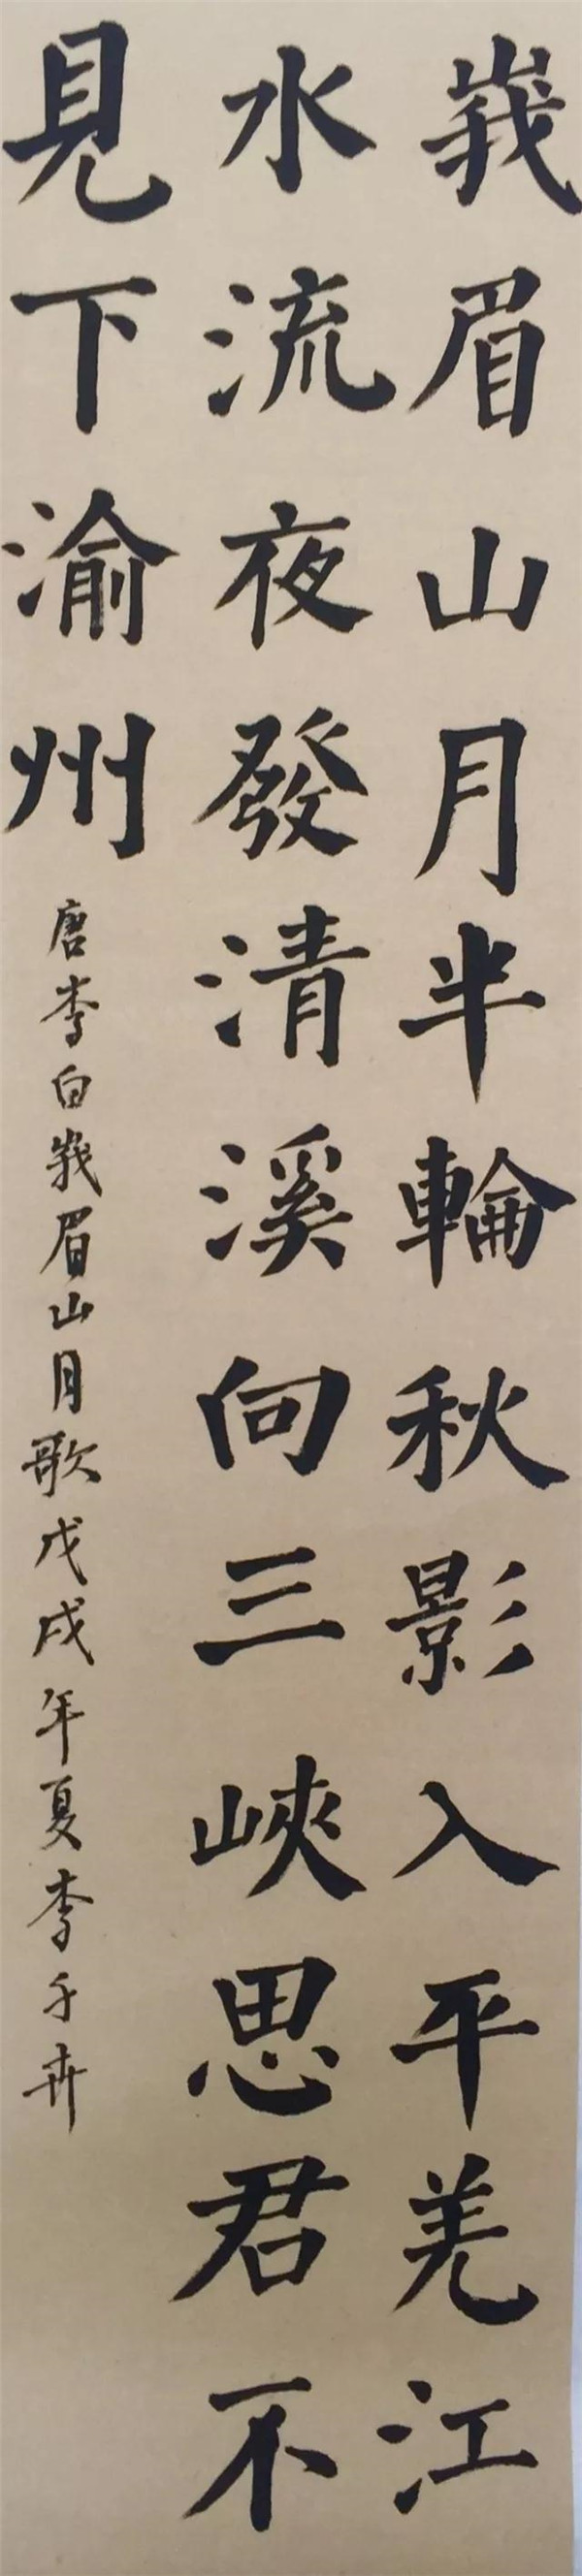 峩眉山月半輪秋影入平羌江
水流夜發清溪向三峽思君不
見下渝州
唐李白峩眉山月歌戊戌年夏李千卉